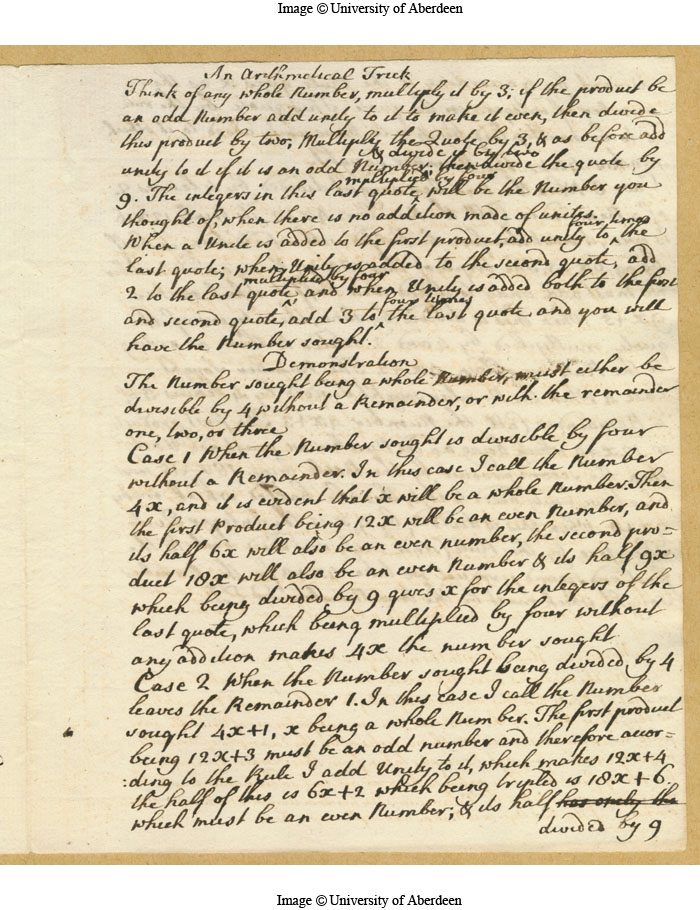 Image © University of Aberdeen
An Arithmetical Trick
Think of any whole Number, multiply it by 3; if the product be
an odd Number add unity to it to make it even, then divide
this product by two, Multiply the Quote by 3, & as before add
& divide it by two
unity to it if it is an odd Number, then divide the quote by
multiplied by four
9. The integers in this last quote ^ will be the Number you
thought of, when there is no addition made of unites.
four times
When a Unite is added to the first product, add unity to ^ the
last quote; when Unity is added to the second quote, add
multiplied by four
2 to the last quote ^ and when Unity is added both to the first
four times
and second quote, add 3 to ^ the last quote and you will
have the Number sought.
Demonstration
The Number sought being a whole Number, must either be
divisible by 4 without a Remainder, or with the remainder
one, two, or three
Case 1 When the Number sought is divisible by four
without a Remainder. In this case I call the Number
4x, and it is evident that x will be a whole Number. Then
the first Product being 12x will be an even Number, and
its half 6x will also be an even number, the second pro=
duct 18x will also be an even Number & its half 9x
which being divided by 9 gives x for the integers of the
last quote, which being multiplied by four without
any addition makes 4x the number sought
Case 2 When the Number sought being divided by 4
leaves the Remainder 1. In this case I call the Number
sought 4x+1, x being a whole Number. The first product
being 12x+3 must be an odd number and therefore accor=
:ding to the Rule I add Unity to it, which makes 12x+4
the half of this is 6x+2 which being tripled is 18x+6.
which must be an even Number, & its half has only the
divided by 9
Image © University of Aberdeen